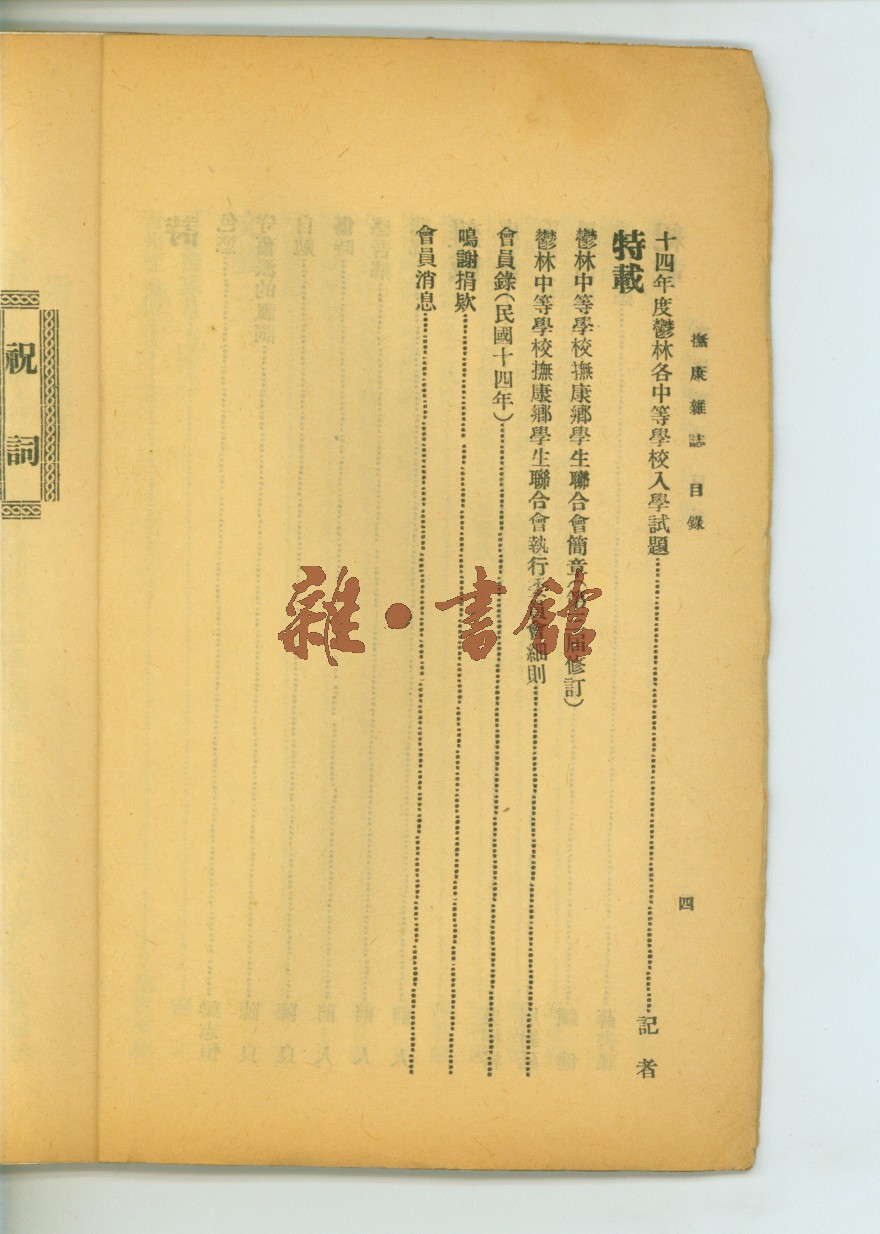 撫康雜誌 目錄
四
十四年度鬱林各中等學校入學試題⋯⋯記者
特載
鬱林中等學校撫康鄉學生聯合會簡章(第 屆修訂)
鬱林中等學校撫康鄉學生聯合會執行委員會細則
會員錄(民國十四年)
鳴謝捐欵
會員消息
祝詞
雜·書館